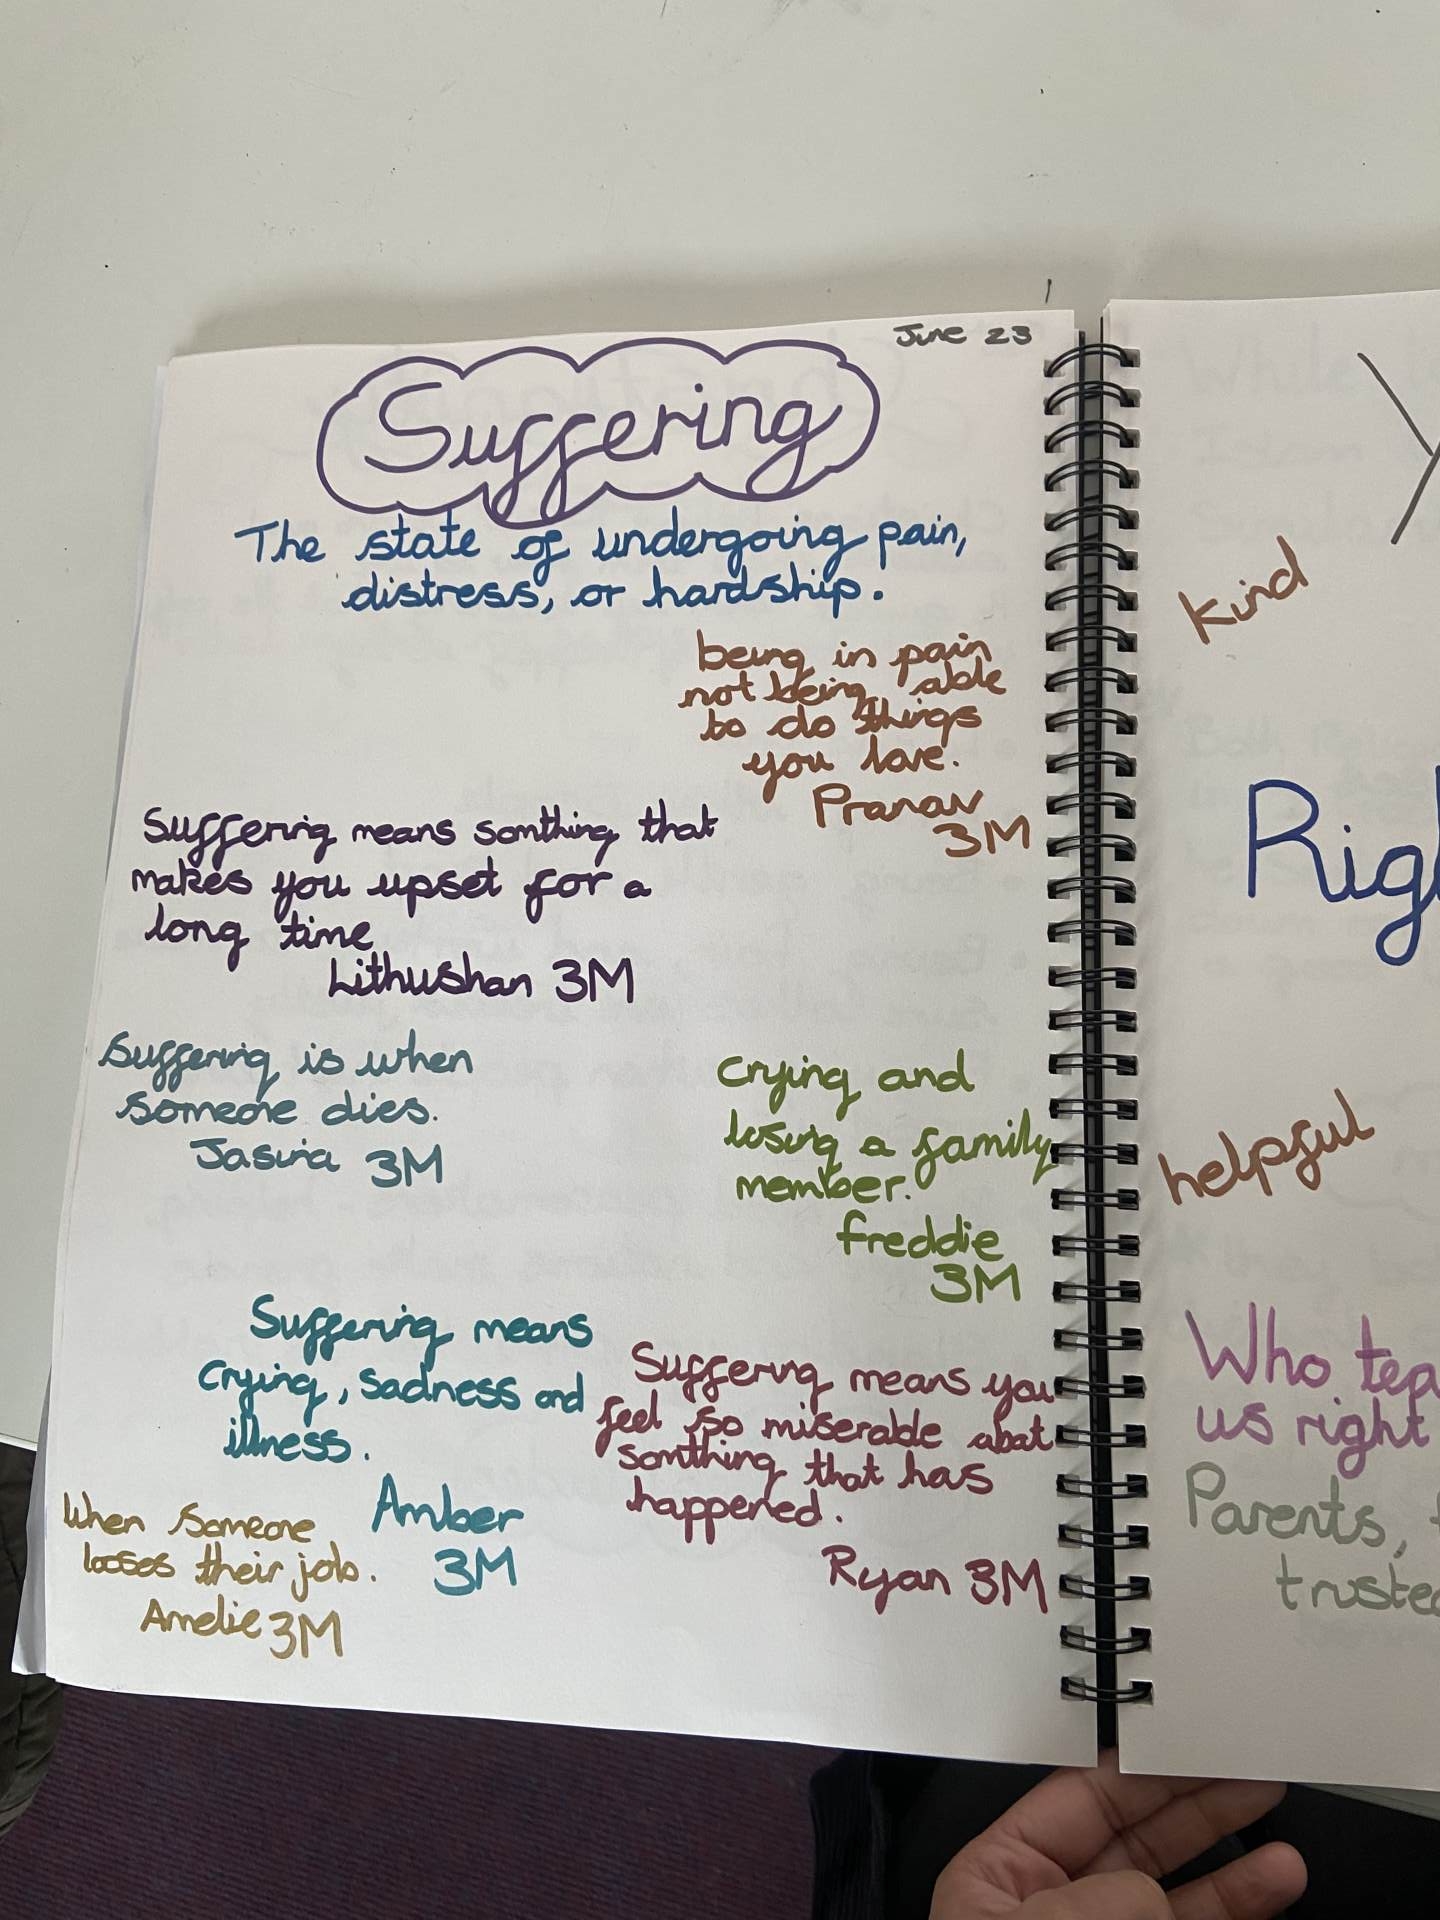 June 23
Suffering
The state of undergoing pain,
distress, or hardship.
being in pain
not being able
to do things
you love.
Pranav
3M
Suffering means somthing that
makes you upset for a
long time
Lithushan 3M
Suffering is when
someone dies.
Jasina 3M
Crying and
losing a family
member.
freddie
3M
Suffering means
crying, sadness and
illness.
Amber
3M
Suffering means you
feel so miserable abat
somthing that has
happened.
Ryan 3M
When someone
looses their job.
Amelie 3M
kind
helpful
Who
us right
Parents,